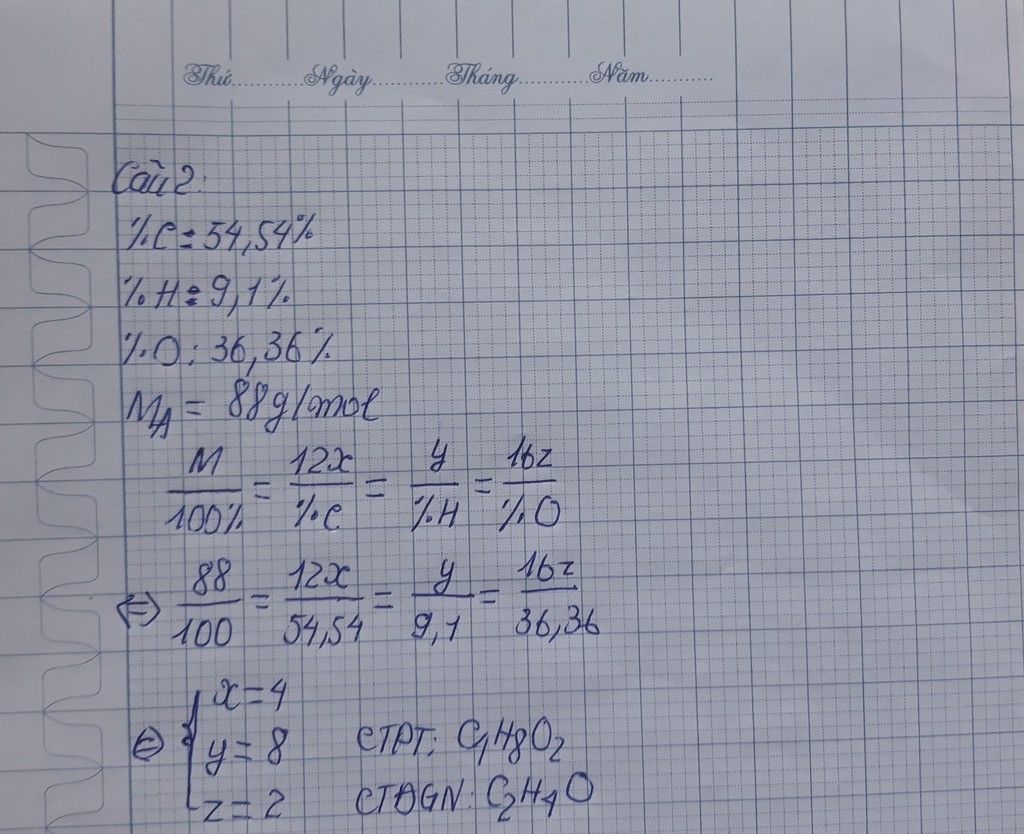 Thứ............Ngày............Tháng............Năm...........
Câu 2:
%C = 54,54%
%H = 9,1%
%O : 36,36%
M_A = 88g/mol
M/100% = 12x/%C = y/%H = 16z/%O
⇔ 88/100 = 12x/54,54 = y/9,1 = 16z/36,36
⇔ { x = 4
y = 8 CTPT: C4H8O2
z = 2 CTĐGN: C2H4O